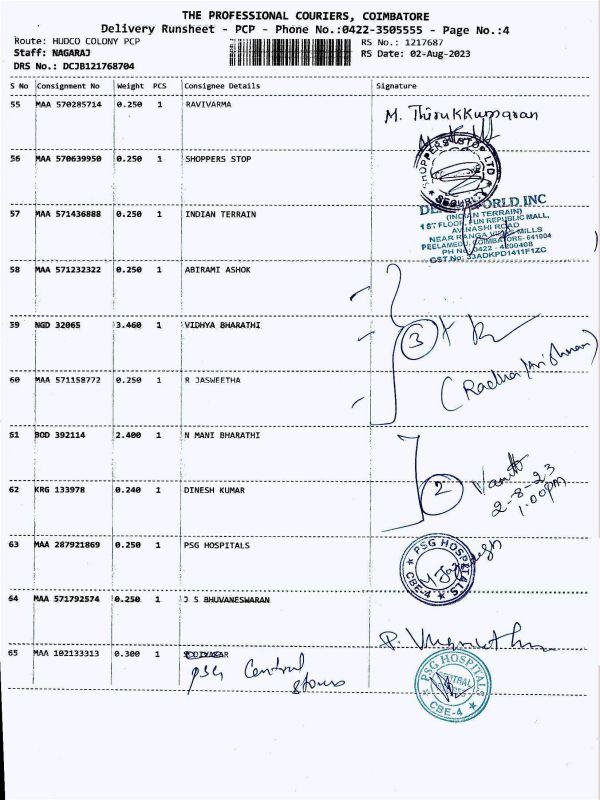 THE PROFESSIONAL COURIERS, COIMBATORE
Delivery Runsheet - PCP - Phone No.:0422-3505555 - Page No.:4
Route: HUDCO COLONY PCP
RS No.: 1217687
Staff: NAGARAJ
RS Date: 02-Aug-2023
DRS No.: DCJB121768704
S No Consignment No Weight PCS Consignee Details Signature
55 MAA 570285714 0.250 1 RAVIVARMA
M. Thirukkumaran
56 MAA 570639950 0.250 1 SHOPPERS STOP
SHOPPERS STOP LTD
57 MAA 571436888 0.250 1 INDIAN TERRAIN
WORLD INC
(INDIAN TERRAIN)
1ST FLOOR, FUN REPUBLIC MALL,
AVINASHI ROAD
NEAR RANGA MILLS
PEELAMEDU, COIMBATORE- 641004
PH No: 0422 - 4200408
GST No: 33ADKPD1411F1ZC
58 MAA 571232322 0.250 1 ABIRAMI ASHOK
59 NGD 32065 3.460 1 VIDHYA BHARATHI
3
60 MAA 571158772 0.250 1 R JASWEETHA
(Radhakrishnan)
61 BOD 392114 2.400 1 N MANI BHARATHI
62 KRG 133978 0.240 1 DINESH KUMAR
2
2-8-23
1.00pm
63 MAA 287921869 0.250 1 PSG HOSPITALS
PSG HOSPITALS
CBE-4
64 MAA 571792574 0.250 1 J S BHUVANESWARAN
65 MAA 102133313 0.300 1
PSG Central
stores
PSG HOSPITALS
CENTRAL
CBE-4